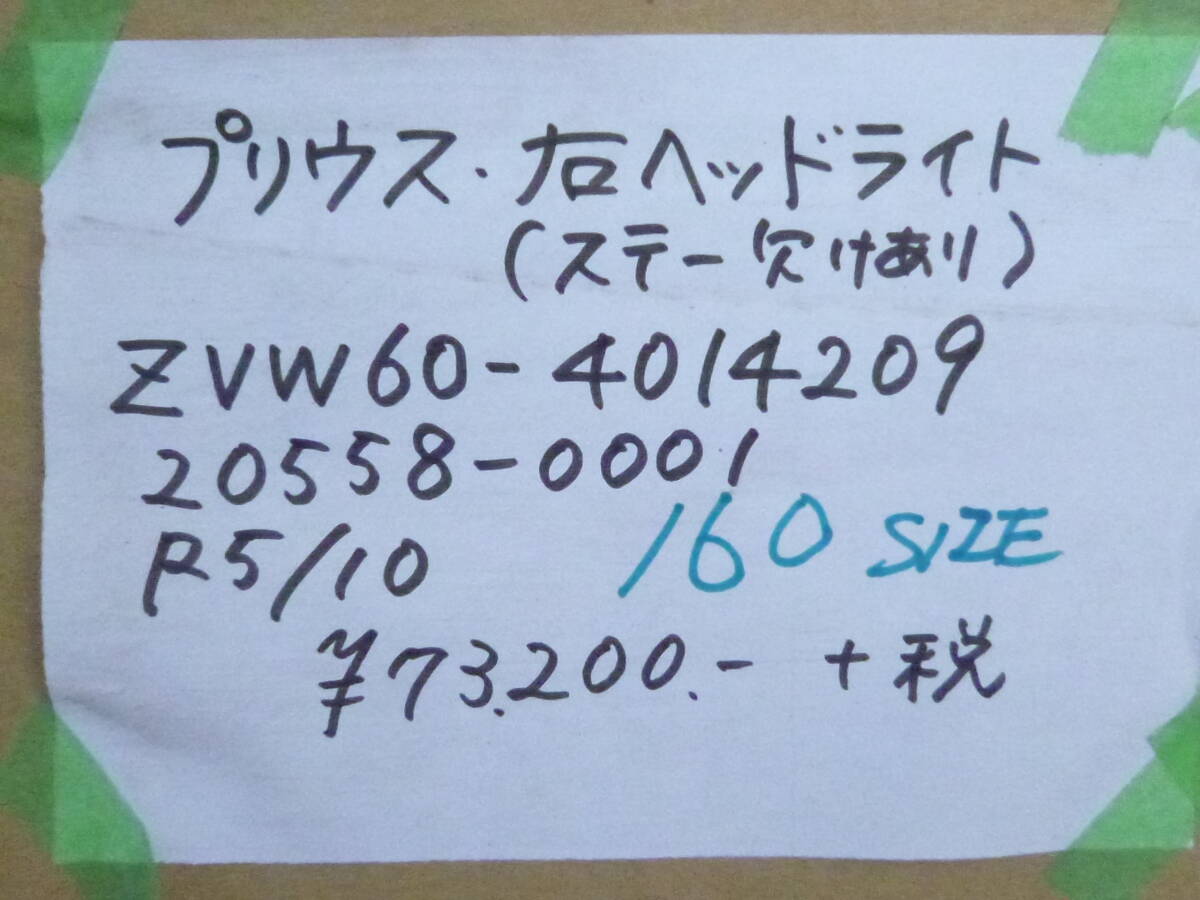 プリウス・右ヘッドライト
(ステー欠けあり)
ZVW60-4014209
20558-0001
R5/10
160 SIZE
¥73.200.- +税